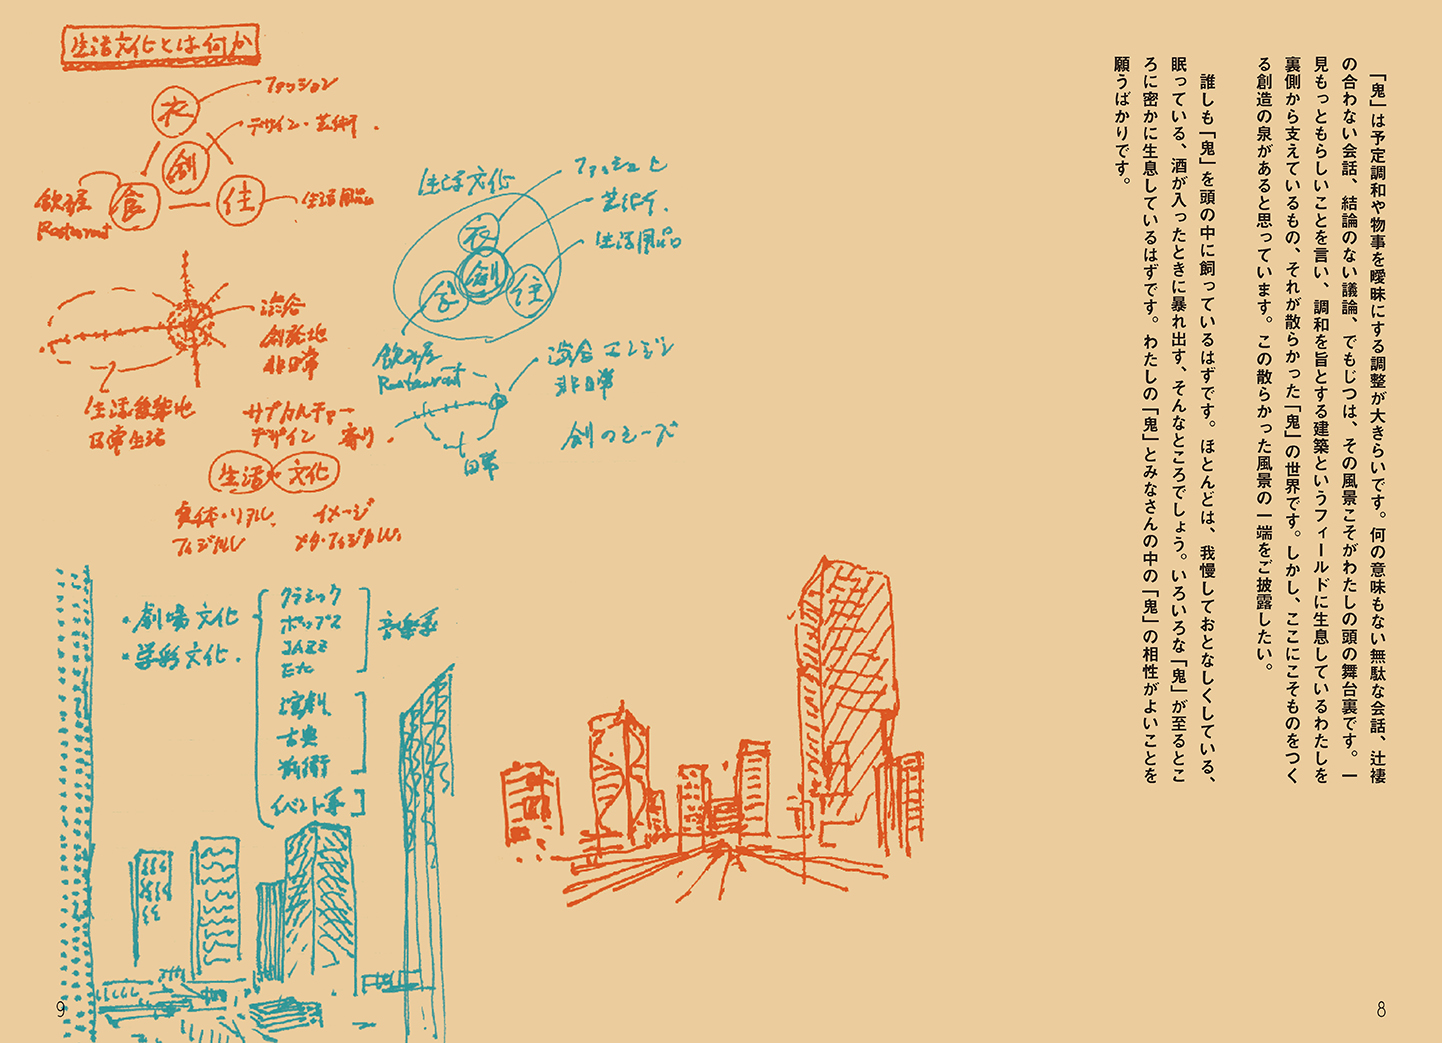 「鬼」は予定調和や物事を曖昧にする調整が大きらいです。何の意味もない無駄な会話、辻褄
の合わない会話、結論のない議論、でもじつは、その風景こそがわたしの頭の舞台裏です。一
見もっともらしいことを言い、調和を旨とする建築というフィールドに生息しているわたしを
裏側から支えているもの、それが散らかった「鬼」の世界です。しかし、ここにこそものをつく
る創造の泉があると思っています。この散らかった風景の一端をご披露したい。
誰しも「鬼」を頭の中に飼っているはずです。ほとんどは、我慢しておとなしくしている、
眠っている、酒が入ったときに暴れ出す、そんなところでしょう。いろいろな「鬼」が至るとこ
ろに密かに生息しているはずです。わたしの「鬼」とみなさんの中の「鬼」の相性がよいことを
願うばかりです。
8
生活文化とは何か
ファッション
衣
デザイン・芸術.
創
食
住
生活用品
Restaurant
混合
創発地
非日常
日常生活
サブカルチャー
デザイン
生活
文化
実体・リアル
フィジカル
イメージ
メタ・フィジカル
生活文化
芸術.
生活用品
衣
創
食
住
Restaurant
混合エンジン
非日常
日常
創のシーズ
・劇場文化
クラシック
ポップス
JAZZ
Etc
音楽系
演劇
古典
イベント系
9